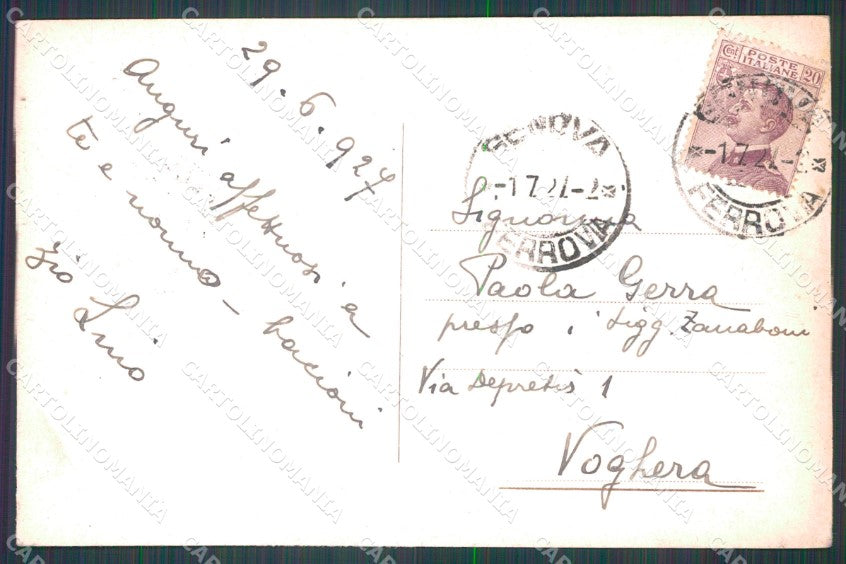 29.6.927
Auguri affettuosi a
te e nonno - bacioni
zio Lino
GENOVA
-1.7.27.-2
FERROVIA
POSTE
ITALIANE
Cent 20
-1.7.27.-
FERROVIA
Signorina
Paola Gerra
presso i Sigg. Zanaboni
Via Depretis 1
Voghera
CARTOLINOMANIA